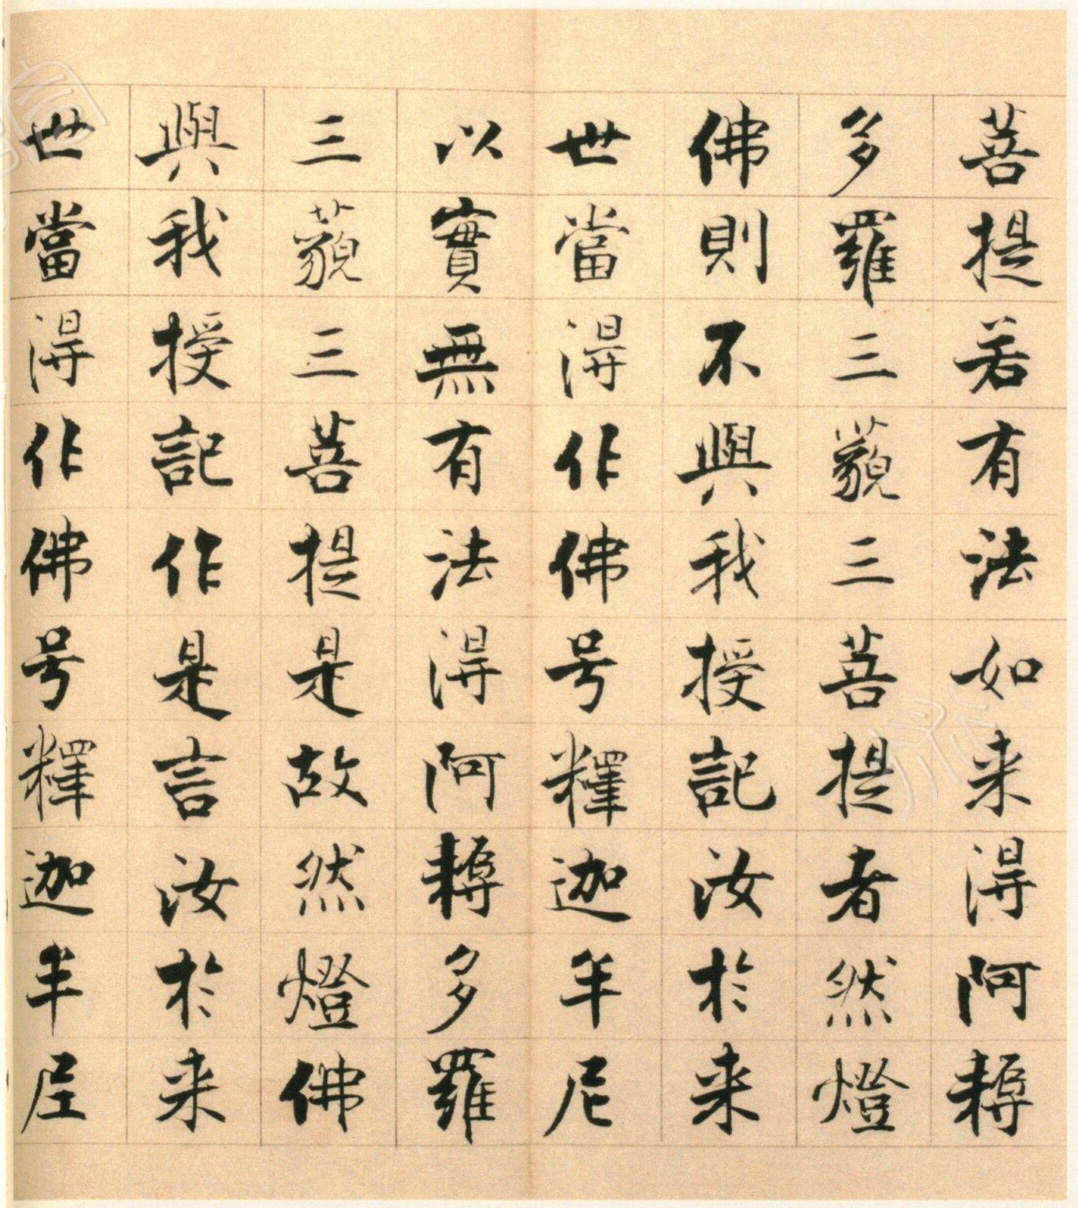 菩提若有法如来淂阿耨
多羅三藐三菩提者然燈
佛則不與我授記汝於来
世當淂作佛号釋迦牟尼
以實無有法淂阿耨多羅
三藐三菩提是故然燈佛
與我授記作是言汝於来
世當淂作佛号釋迦牟尼